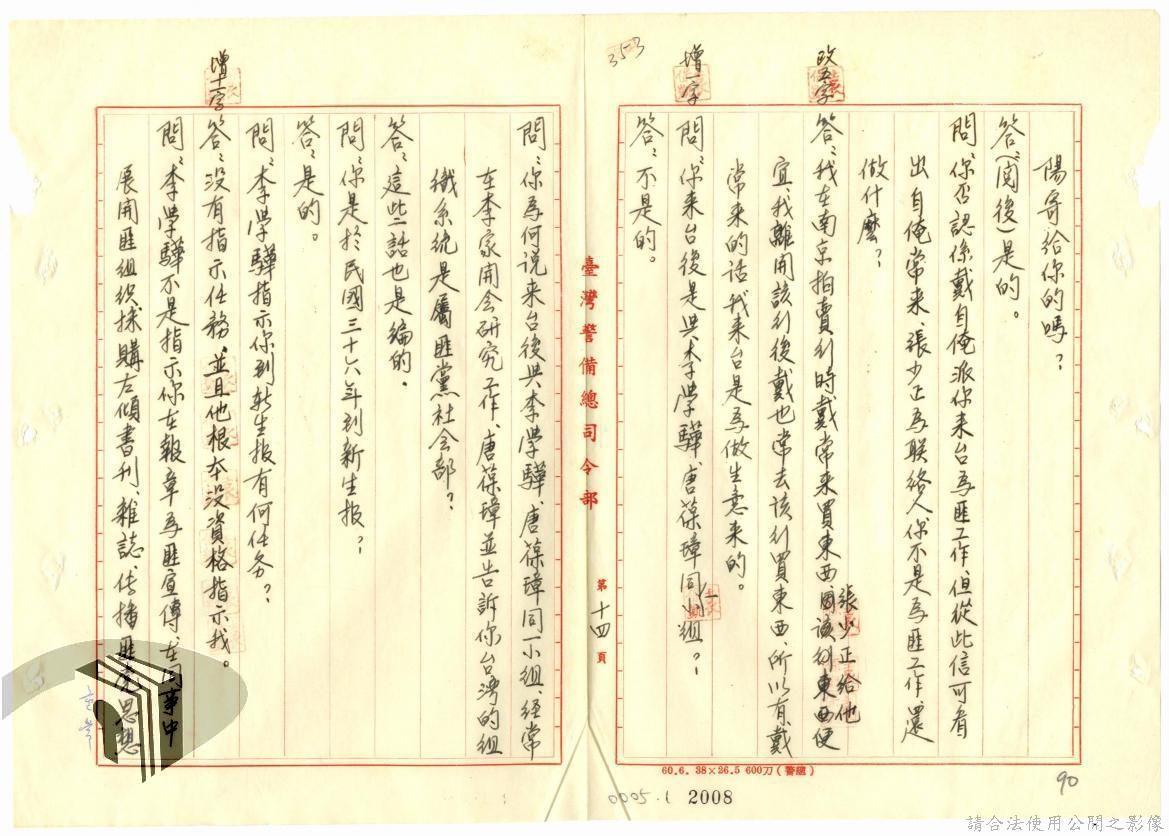 353
陽寄給你的嗎？
答：(閱後)是的。
問：你否認係戴自俺派你来台為匪工作、但從此信可看
出自俺常来、張少正為联絡人你不是為匪工作還
做什麼？
改五字
答：我在南京拍賣行時戴常来買東西、
張少正給他
東西便
宜、我離開該行後戴也常去該行買東西、所以有戴
常来的話我来台是為做生意来的。
增一字
問：你来台後是與李學驊、唐葆璋同一小組？
答：不是的。
臺灣警備總司令部
第十四頁
問：你為何说来台後與李學驊、唐葆璋同一小組、經常
在李家開会研究工作、唐葆璋並告訴你台湾的組
織系統是屬匪黨社会部？
答：這些話也是編的。
問：你是於民國三十六年到新生报？
答：是的。
問：李學驊指示你到新生报有何任务？
答：没有指示任務、並且他根本没資格指示我。
問：李學驊不是指示你在報章為匪宣傳、在同事中
展開匪組织採購左傾書刊、雜誌、傳播匪党思想
60.6. 38×26.5 600刀(警總)
0005.1 2008
90
請合法使用公開之影像